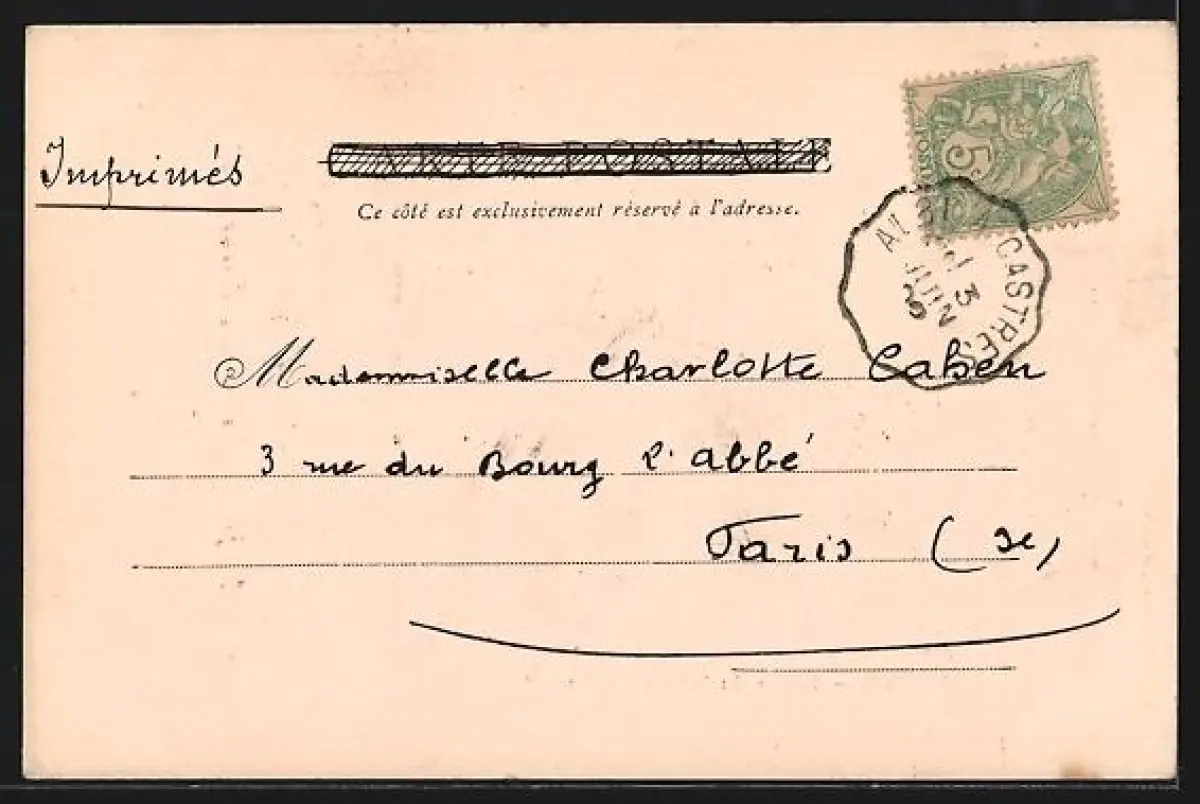 Imprimés
CARTE POSTALE
Ce côté est exclusivement réservé à l'adresse.
5c
ALBI A CASTRES
3
JUIN
Mademoiselle Charlotte Cahen
3 rue du Bourg l'abbé
Paris (3e)